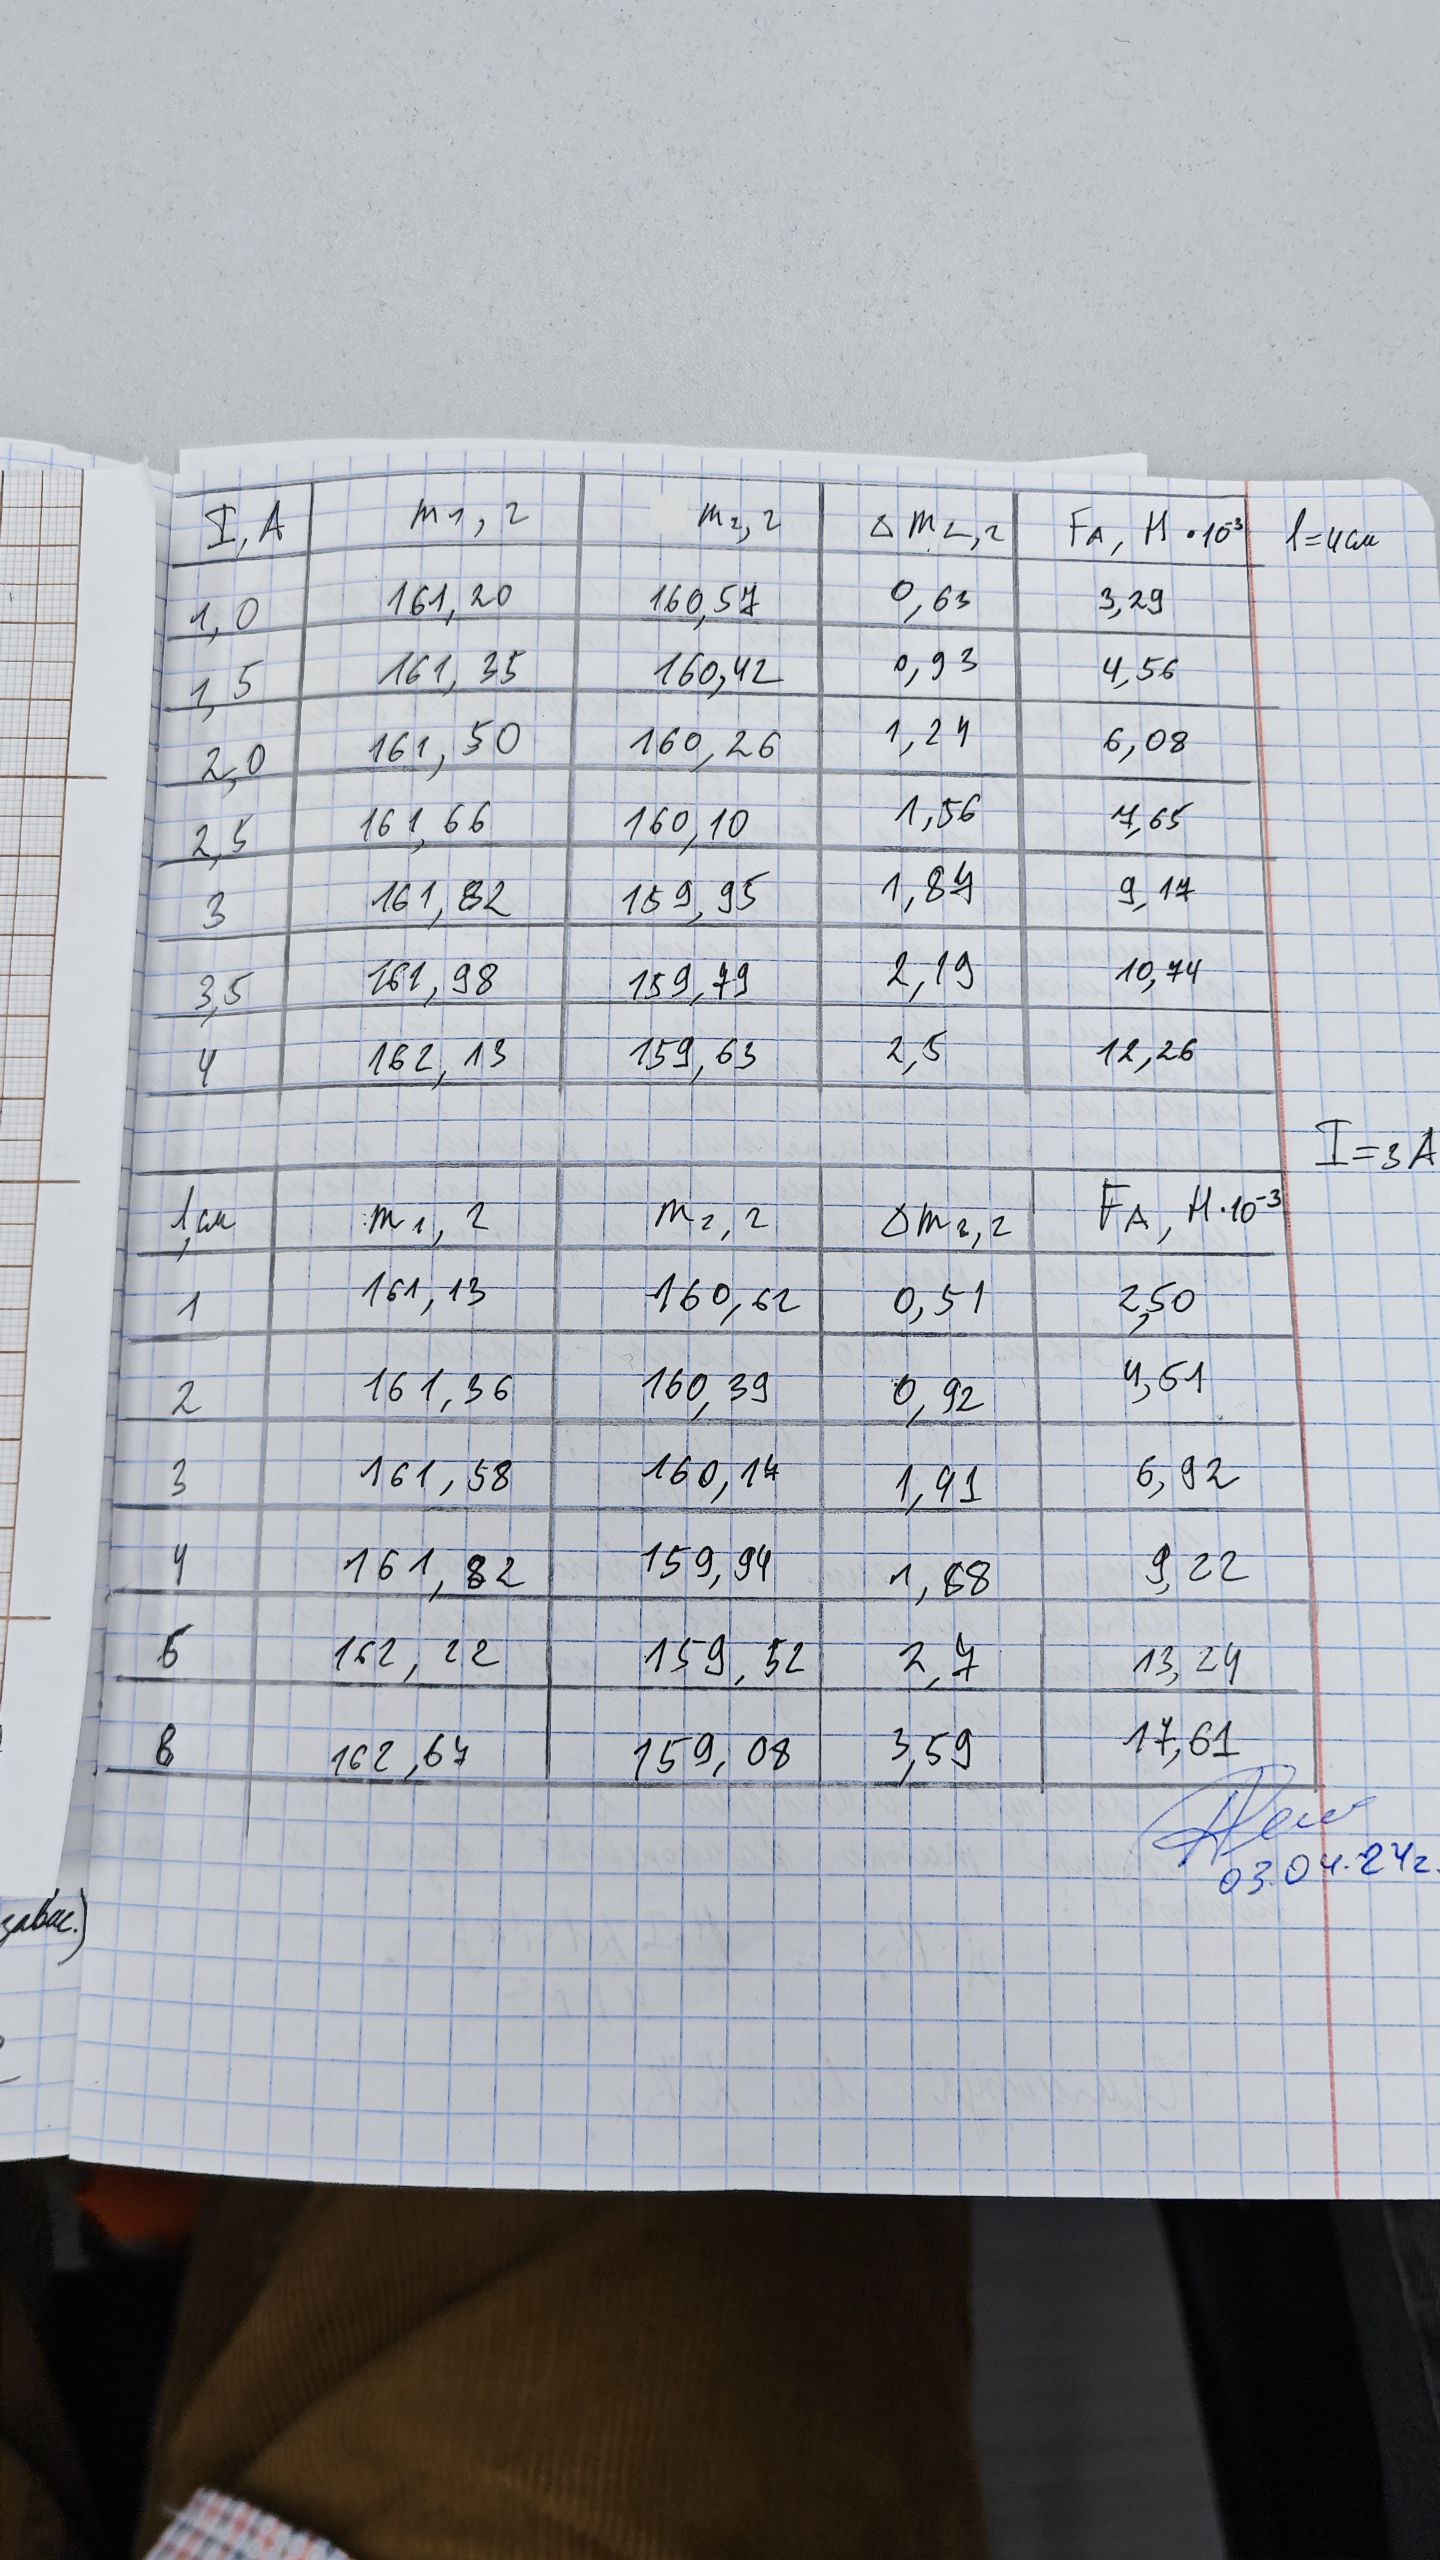 I, A m₁, г m₂, г Δm₂, г Fᴀ, Н·10⁻³ l=4см
1,0 161,20 160,57 0,63 3,29
1,5 161,35 160,42 0,93 4,56
2,0 161,50 160,26 1,24 6,08
2,5 161,66 160,10 1,56 7,65
3 161,82 159,95 1,87 9,17
3,5 161,98 159,79 2,19 10,74
4 162,13 159,63 2,5 12,26
I=3A
l,см m₁, г m₂, г Δm₂, г Fᴀ, Н·10⁻³
1 161,13 160,62 0,51 2,50
2 161,36 160,39 0,92 4,61
3 161,58 160,17 1,41 6,92
4 161,82 159,94 1,88 9,22
6 162,22 159,52 2,7 13,24
8 162,67 159,08 3,59 17,61
03.04.24г.
завис.)